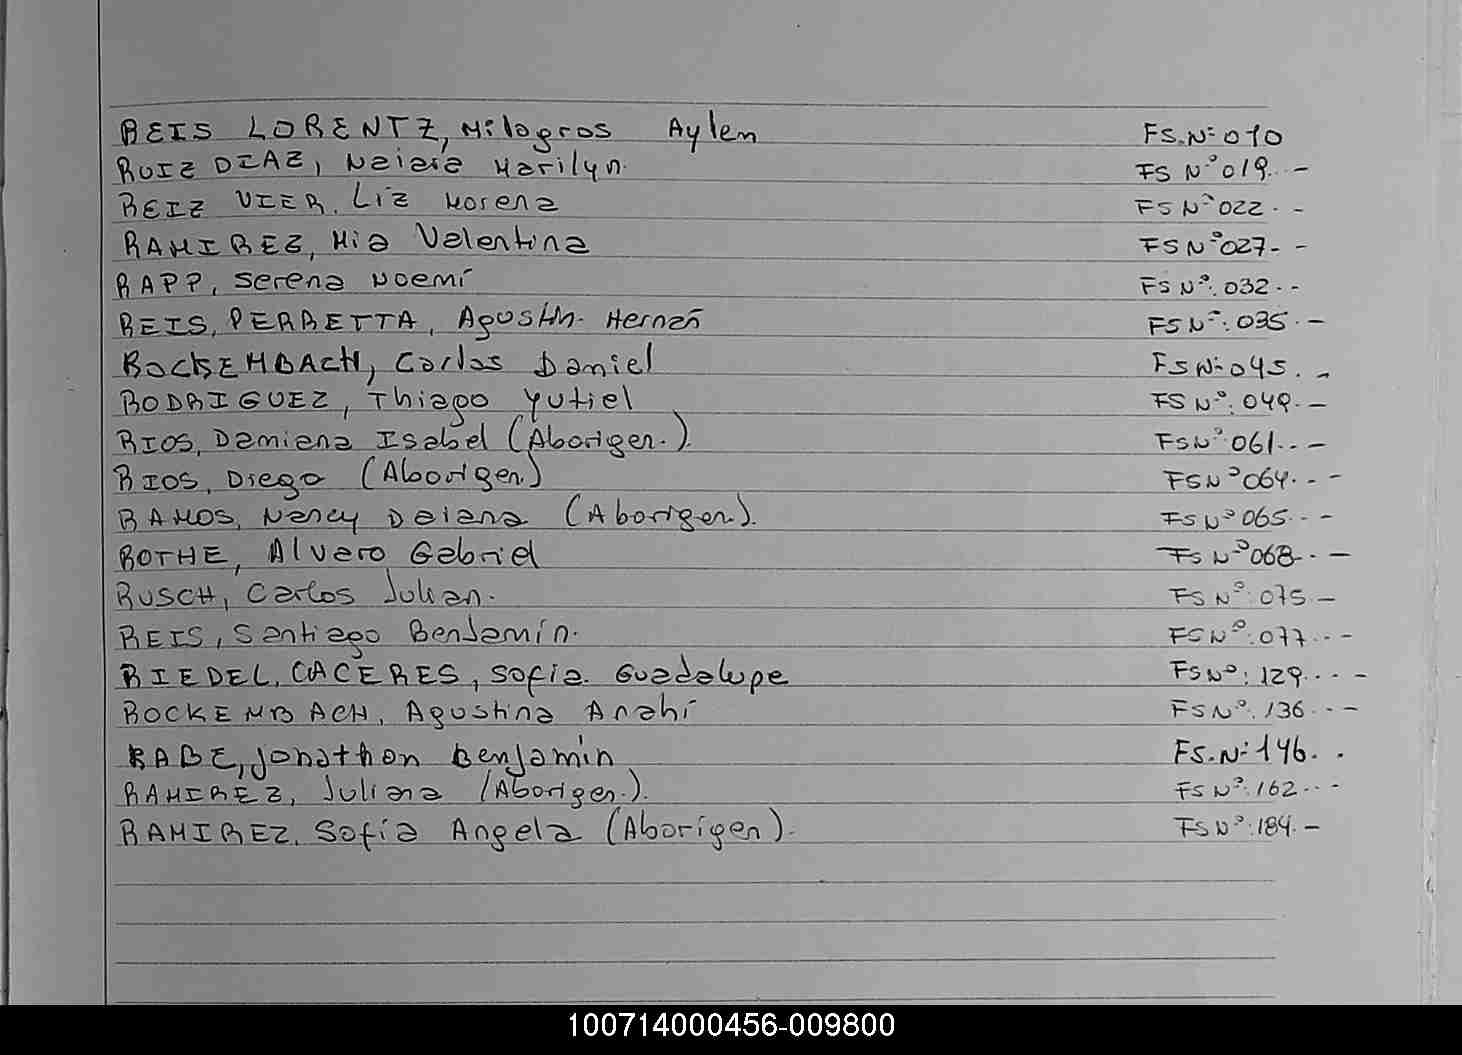 REIS LORENTZ, Milagros Aylen FS.Nº 010
RUIZ DIAZ, Naiara Marilyn. FS Nº 019.. -
REIZ VIER. Liz Morena FS Nº 022. -
RAMIREZ, Mia Valentina FS Nº 027. -
RAPP, Serena Noemí FS Nº. 032. -
REIS, PERRETTA, Agustín. Hernán FS Nº: 035. -
ROCKEMBACH, Carlos Daniel FS Nº 045. -
RODRIGUEZ, Thiago Yutiel FS Nº: 049. -
RIOS, Damiana Isabel (Aborigen.). FS Nº 061.. -
RIOS, Diego (Aborigen) FS Nº 064.. -
RAMOS, Nancy Daiana (Aborigen.). FS Nº 065.. -
ROTHE, Alvaro Gabriel FS Nº 068.. -
RUSCH, Carlos Julian. FS Nº: 075 -
REIS, Santiago Benjamín. FS Nº: 077.. -
RIEDEL, CACERES, Sofía. Guadalupe FS Nº: 129... -
ROCKEMBACH, Agustina Anahí FS Nº. 136.. -
RABE, Jonathon Benjamin FS. Nº 146. .
RAMIREZ, Juliana (Aborigen.). FS Nº: 162.. -
RAMIREZ. Sofía Angela (Aborigen). FS Nº: 184. -
100714000456-009800